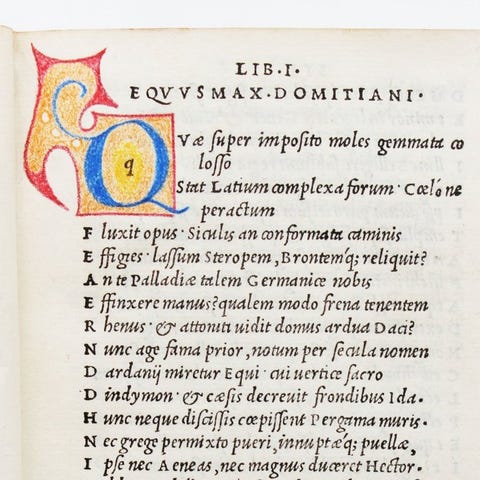 LIB·I·
EQVVS MAX·DOMITIANI·
q
QVæ super imposito moles gemmata co
losso
Stat Latium complexa forum· Cœlo ne
peractum
F luxit opus· Siculis an conformata caminis
E ffigies· lassum Steropem, Brontemq; reliquit?
A n te Palladiæ talem Germanice nobis
E ffinxere manus? qualem modo frena tenentem
R henus· & attoniti uidit domus ardua Daci?
N unc age fama prior, notum per secula nomen
D ardanij miretur Equi· cui vertice sacro
D indymon· & cæsis decreuit frondibus Ida·
H unc neque discissis cœpissent Pergama muris·
N ec grege permixto pueri, innuptæq; puellæ,
I pse nec Aeneas, nec magnus duceret Hector·